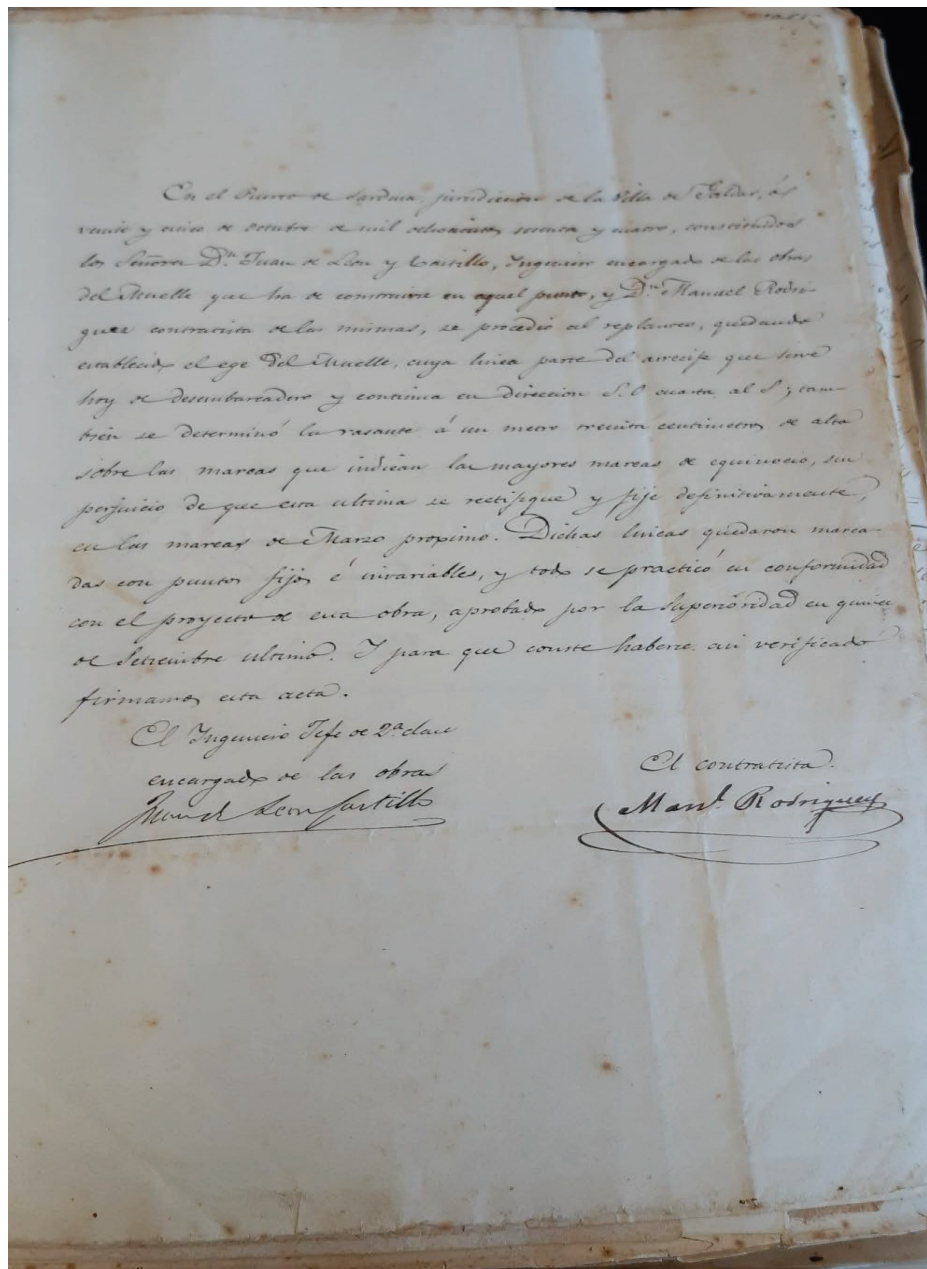 En el Puerto de Sardina, jurisdiccion de la Villa de Galdar, á
veinte y cinco de Octubre de mil ochocientos sesenta y cuatro, constituidos
los Señores Dn. Juan de Leon y Castillo, Ingeniero encargado de las obras
del Muelle que ha de construirse en aquel punto, y Dn. Manuel Rodri-
guez contratista de las mismas, se procedió al replanteo, quedando
establecido el ege del Muelle, cuya linea parte del arrecife que sirve
hoy de desembarcadero y continua en direccion S.O cuarta al S; tam-
bien se determinó la rasante á un metro treinta centimetros de alta
sobre las mareas que indican las mayores mareas de equinocio, sin
perjuicio de que esta ultima se rectifique y fije definitivamente,
en las mareas de Marzo proximo. Dichas lineas quedaron marca-
das con puntos fijos é invariables, y todo se practicó en conformidad
con el proyecto de esa obra, aprobado por la Superioridad en quince
de Setiembre ultimo. Y para que conste haberse asi verificado
firmamos esta acta.
El Ingeniero Jefe de 2ª clase
encargado de las obras
Juan de Leon y Castillo
El contratista.
Manl. Rodriguez